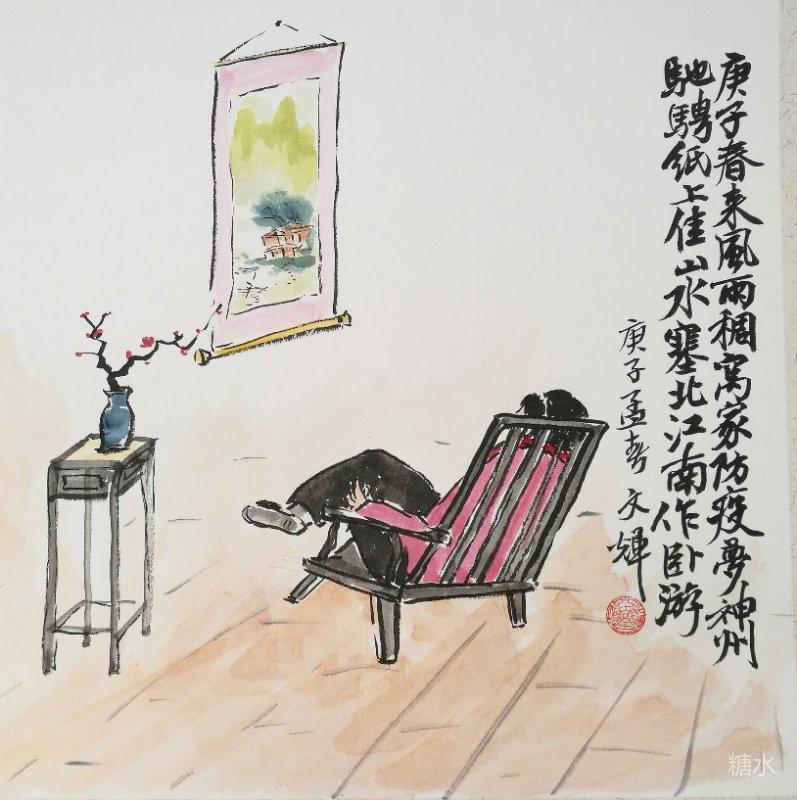 庚子春来風雨稠寓家防疫夢神州
馳騁紙上佳山水塞北江南作卧游
庚子孟春文輝
糖水